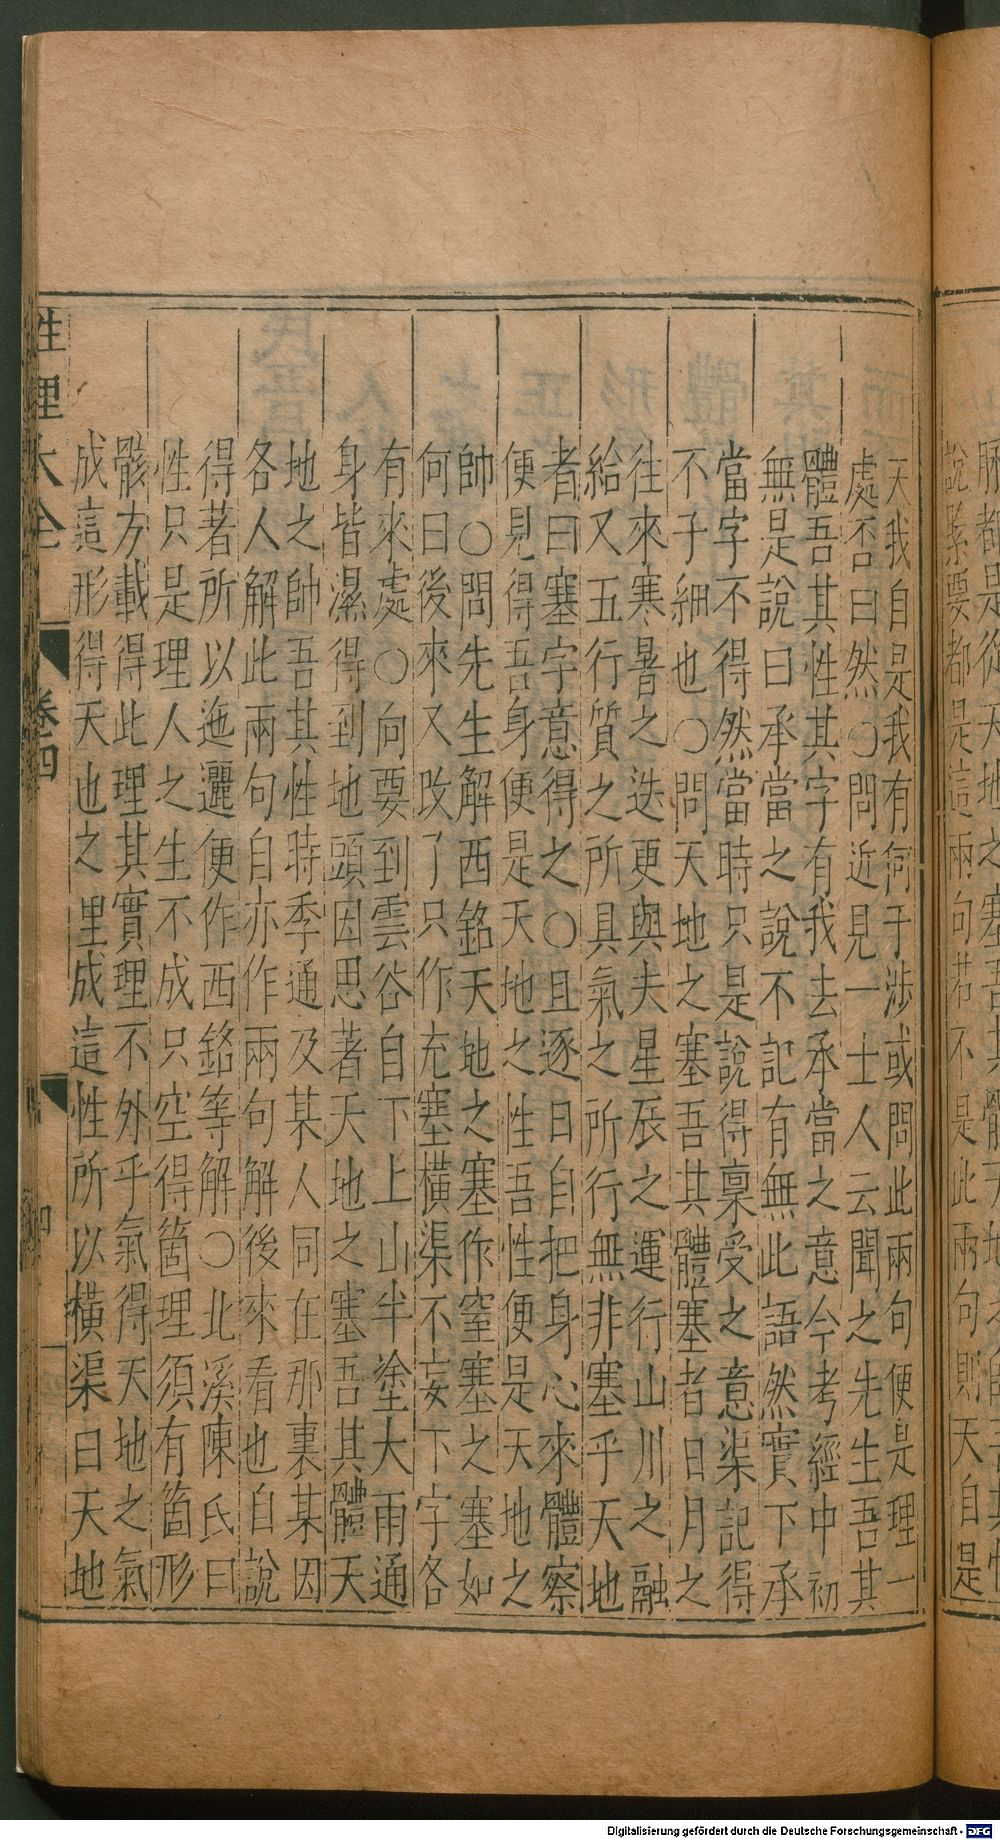 說緊要都是這兩句若不是此兩句則天自是
天我自是我有何干涉或問此兩句便是理一
處否曰然〇問近見一士人云聞之先生吾其
體吾其性其字有我去承當之意今考經中初
無是說曰承當之說不記有無此語然實下承
當字不得然當時只是說得稟受之意渠記得
不子細也〇問天地之塞吾其體塞者日月之
往來寒暑之迭更與夫星辰之運行山川之融
給又五行質之所具氣之所行無非塞乎天地
者曰塞字意得之〇且逐日自把身心來體察
便見得吾身便是天地之性吾性便是天地之
帥〇問先生解西銘天地之塞作窒塞之塞如
何曰後來又改了只作充塞橫渠不妄下字各
有來處〇向要到雲谷自下上山半塗大雨通
身皆濕得到地頭因思著天地之塞吾其體天
地之帥吾其性時季通及某人同在那裏某因
各人解此兩句自亦作兩句解後來看也自說
得著所以迤邐便作西銘等解〇北溪陳氏曰
性只是理人之生不成只空得箇理須有箇形
骸方載得此理其實理不外乎氣得天地之氣
成這形得天也之里成這性所以橫渠曰天地
性理大全 卷四 四
Digitalisierung gefördert durch die Deutsche Forschungsgemeinschaft - DFG